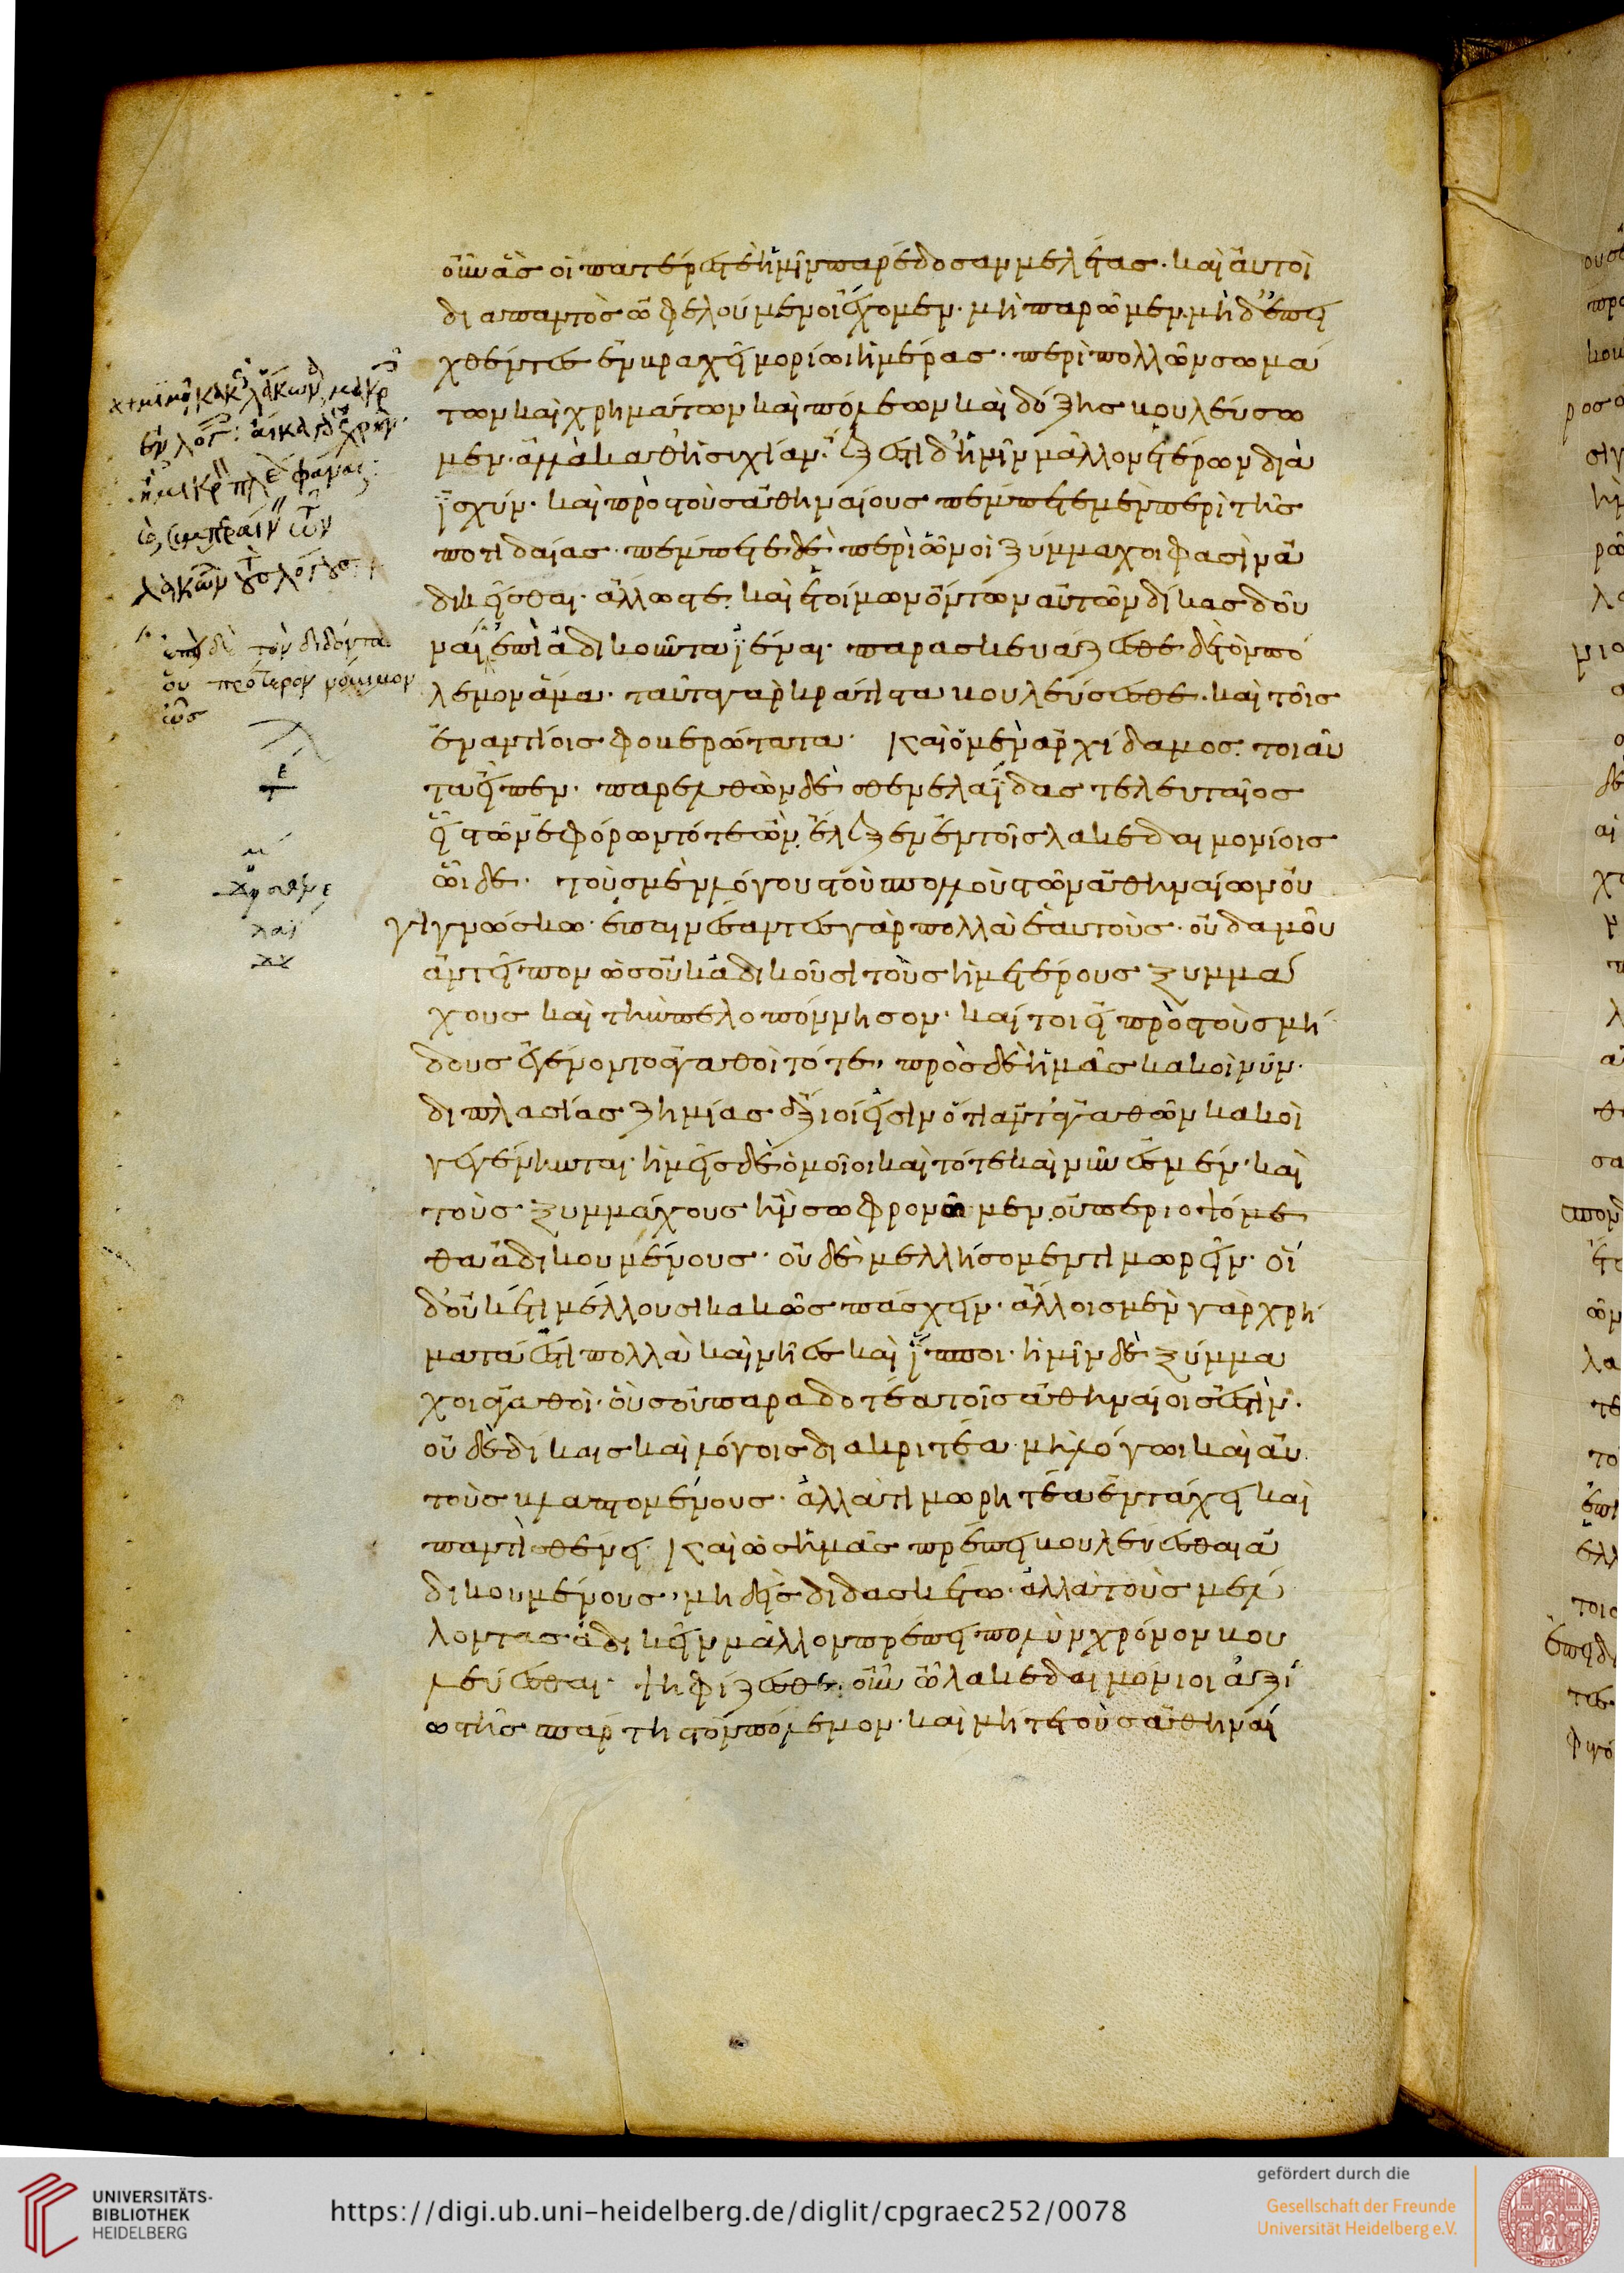 οὖν ἃς οἱ πατέρες τε ἡμῖν παρέδοσαν μελέτας· καὶ αὐτοὶ
διαπαντὸς ὠφελούμενοι ἔχομεν· μὴ παρῶμεν· μὴ δ' ἐπει
χθέντες ἐν βραχεῖ μορίωι ἡμέρας· περὶ πολλῶν σωμά
των καὶ χρημάτων καὶ πόλεων καὶ δόξης βουλεύσω
μεν· ἀλλὰ καθ' ἡσυχίαν· ἔξεστι δ' ἡμῖν μᾶλλον ἑτέρων διὰ
ἰσχύν· καὶ πρὸς τοὺς ἀθηναίους πέμπετε μὲν περὶ τῆς
ποτιδαίας· πέμπετε δὲ περὶ ὧν οἱ ξύμμαχοι φασὶν ἀ
δικεῖσθαι· ἄλλως τε καὶ ἑτοίμων ὄντων αὐτῶν δίκας δοῦ
ναι ἐπὶ ἀδικοῦντα ἰέναι· παρασκευάζεσθε δὲ τὸν πό
λεμον ἅμα· ταῦτα γὰρ κράτιστα βουλεύσεσθε· καὶ τοῖς
ἐναντίοις φοβερώτατα· καὶ ὁ μὲν ἀρχίδαμος τοιαῦ
τα εἶπεν· παρελθὼν δὲ σθενελαΐδας τελευταῖος
εἷς τῶν ἐφόρων τότε ὢν, ἔλεξεν ἐν τοῖς λακεδαιμονίοις
ὧδε· τοὺς μὲν λόγους τοὺς πολλοὺς τῶν ἀθηναίων οὐ
γιγνώσκω· ἐπαινέσαντες γὰρ πολλὰ ἑαυτοὺς· οὐδαμοῦ
ἀντεῖπον ὡς οὐκ ἀδικοῦσι τοὺς ἡμετέρους ξυμμά
χους καὶ τὴν πελοπόννησον· καίτοι εἰ πρὸς τοὺς μή
δους ἐγένοντο ἀγαθοὶ τότε, πρὸς δὲ ἡμᾶς κακοὶ νῦν·
διπλασίας ζημίας ἄξιοί εἰσιν ὅτι ἀντ' ἀγαθῶν κακοὶ
γεγένηνται· ἡμεῖς δὲ ὁμοῖοι καὶ τότε καὶ νῦν ἐσμέν· καὶ
τοὺς ξυμμάχους ἢν σωφρονῶμεν, οὐ περιοψόμε
θα ἀδικουμένους· οὐδὲ μελλήσομεν τιμωρεῖν· οἱ
δ' οὐκέτι μέλλουσι κακῶς πάσχειν· ἄλλοις μὲν γὰρ χρή
ματά ἐστι πολλὰ καὶ νῆες καὶ ἵπποι· ἡμῖν δὲ ξύμμα
χοι ἀγαθοὶ· οὓς οὐ παραδοτέα τοῖς ἀθηναίοις ἐστὶν·
οὐδὲ δίκαις καὶ λόγοις διακριτέα μὴ λόγωι καὶ αὐ
τοὺς βλαπτομένους· ἀλλὰ τιμωρητέα ἐν τάχει καὶ
παντὶ σθένει· καὶ ὡς ἡμᾶς πρέπει βουλεύεσθαι ἀ
δικουμένους, μηδεὶς διδασκέτω· ἀλλὰ τοὺς μέλ
λοντας ἀδικεῖν μᾶλλον πρέπει πολὺν χρόνον βου
λεύεσθαι· ψηφίζεσθε οὖν ὦ λακεδαιμόνιοι ἀξί
ως τῆς σπάρτης τὸν πόλεμον· καὶ μήτε τοὺς ἀθηναί
ἐπὶ δὲ τὸν διδόντα
οὐ πρότερον νόμιμον
ὡς
UNIVERSITÄTS-
BIBLIOTHEK
HEIDELBERG
https://digi.ub.uni-heidelberg.de/diglit/cpgraec252/0078
gefördert durch die
Gesellschaft der Freunde
Universität Heidelberg e.V.